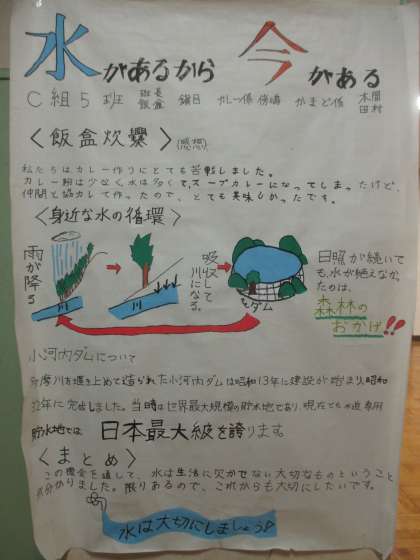 水があるから 今がある
C組5班 班長 飯盒 鎌田 カレー係 傍嶋 かまど係 本間 田村
〈飯盒炊爨〉(感想)
私たちはカレー作りにとても苦戦しました。
カレー粉は少なく、水は多くて、スープカレーになってしまったけど、
仲間と協力して作ったので、とても美味しかったです。
〈身近な水の循環〉
雨が降る
川
吸収して川になる。
川
ダム
日照が続いても、水が絶えなかったのは、
森林の
おかげ!!
小河内ダムについて
多摩川を堰き止めて造られた小河内ダムは昭和13年に建設が始まり、昭和
32年に完成しました。当時は世界最大規模の貯水池であり、現在も水道専用
貯水池では 日本最大級を誇ります。
〈まとめ〉
この機会を通して、水は生活に欠かせない大切なものということ
が分かりました。限りあるので、これからも大切にしたいです。
水は大切にしましょう